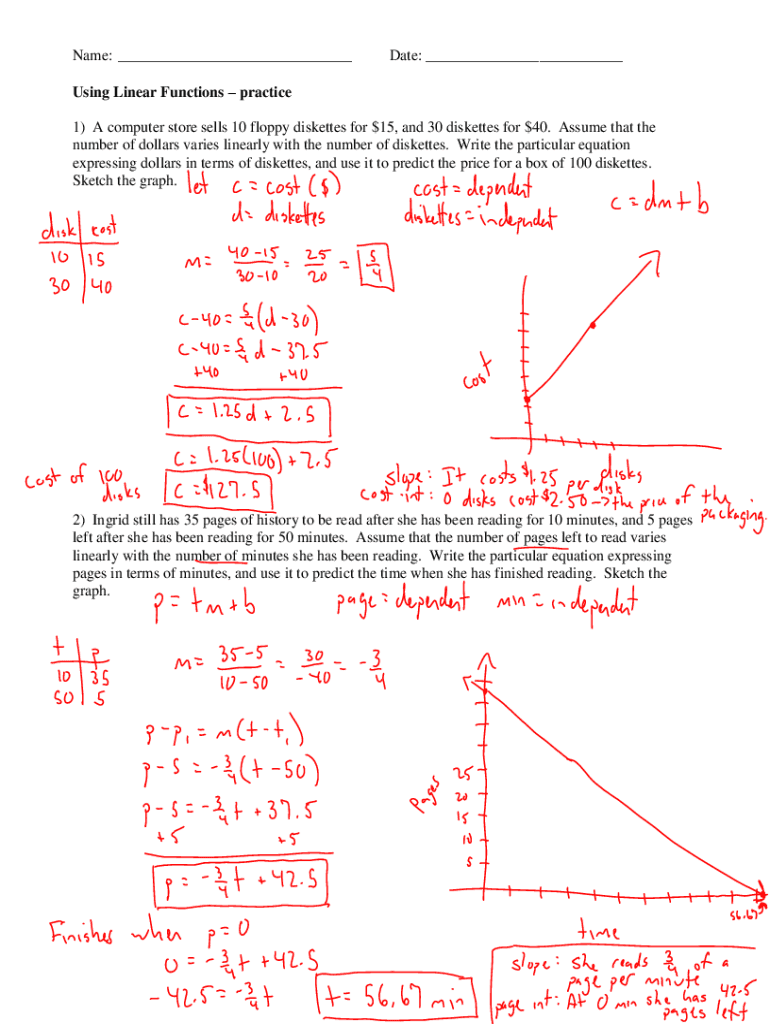 Name: ______________________________ Date: _________________________
Using Linear Functions – practice
1) A computer store sells 10 floppy diskettes for $15, and 30 diskettes for $40. Assume that the
number of dollars varies linearly with the number of diskettes. Write the particular equation
expressing dollars in terms of diskettes, and use it to predict the price for a box of 100 diskettes.
Sketch the graph.
let c = cost ($)
d = diskettes
cost = dependent
diskettes = independent
c = dm + b
disk | cost
10 | 15
30 | 40
m = 40-15/30-10 = 25/20 = 5/4
c-40 = 5/4(d-30)
c-40 = 5/4 d - 37.5
+40 +40
c = 1.25d + 2.5
c = 1.25(100) + 2.5
cost of 100 disks
c = $127.5
cost
disks
slope: It costs $1.25 per disk
cost int: 0 disks cost $2.50 → the price of the packaging.
2) Ingrid still has 35 pages of history to be read after she has been reading for 10 minutes, and 5 pages
left after she has been reading for 50 minutes. Assume that the number of pages left to read varies
linearly with the number of minutes she has been reading. Write the particular equation expressing
pages in terms of minutes, and use it to predict the time when she has finished reading. Sketch the
graph.
p = tm + b
page = dependent
min = independent
t | p
10 | 35
50 | 5
m = 35-5/10-50 = 30/-40 = -3/4
p-p₁ = m(t-t₁)
p-5 = -3/4(t-50)
p-5 = -3/4 t + 37.5
+5 +5
p = -3/4 t + 42.5
pages
25
20
15
10
5
56.67
time
Finishes when p = 0
0 = -3/4 t + 42.5
-42.5 = -3/4 t
t = 56.67 min
slope: she reads 3/4 of a
page per minute
page int: At 0 min she has 42.5
pages left